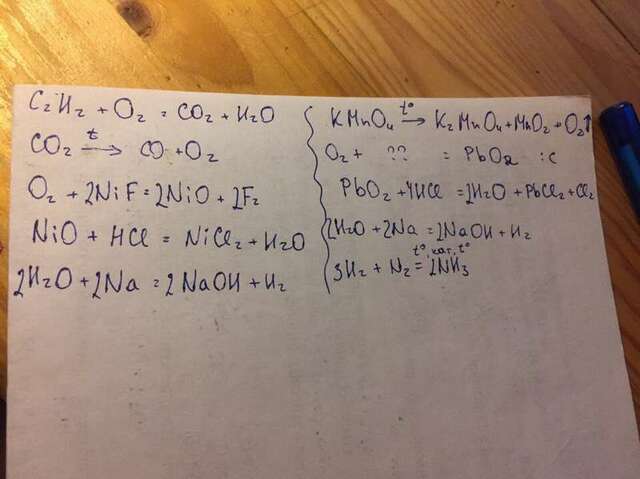 C₂H₂ + O₂ = CO₂ + H₂O
CO₂ t→ CO + O₂
O₂ + 2NiF = 2NiO + 2F₂
NiO + HCl = NiCl₂ + H₂O
2H₂O + 2Na = 2NaOH + H₂
KMnO₄ t°→ K₂MnO₄ + MnO₂ + O₂↑
O₂ + ?? = PbO₂ :C
PbO₂ + 4HCl = 2H₂O + PbCl₂ + Cl₂
2H₂O + 2Na = 2NaOH + H₂
3H₂ + N₂ t°, кат, t°= 2NH₃